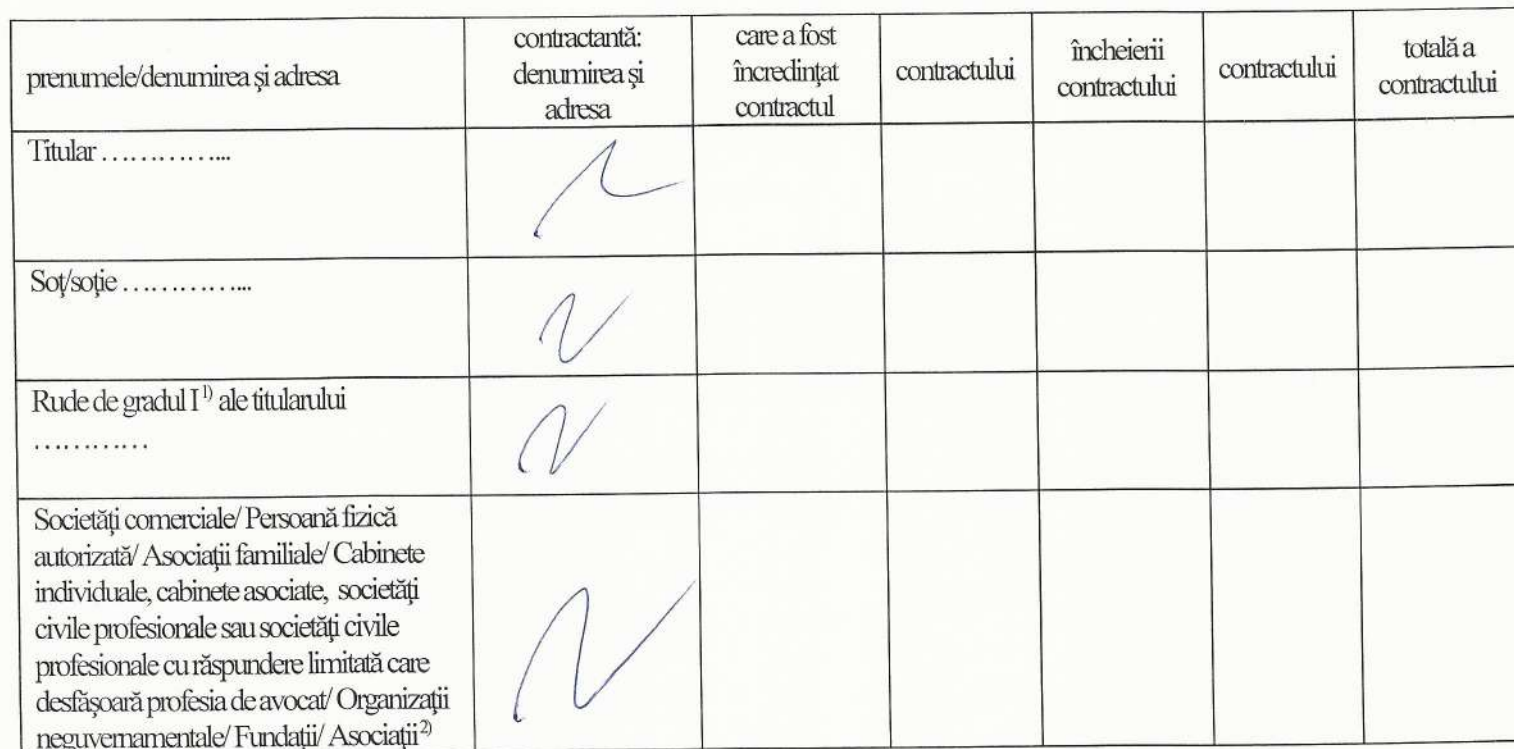 prenumele/denumirea și adresa
contractantă:
denumirea și
adresa
care a fost
încredințat
contractul
contractului
încheierii
contractului
contractului
totală a
contractului
Titular …………...
Soț/soție …………...
Rude de gradul I 1) ale titularului
…………
Societăți comerciale/ Persoană fizică
autorizată/ Asociații familiale/ Cabinete
individuale, cabinete asociate, societăți
civile profesionale sau societăți civile
profesionale cu răspundere limitată care
desfășoară profesia de avocat/ Organizații
neguvernamentale/ Fundații/ Asociații 2)